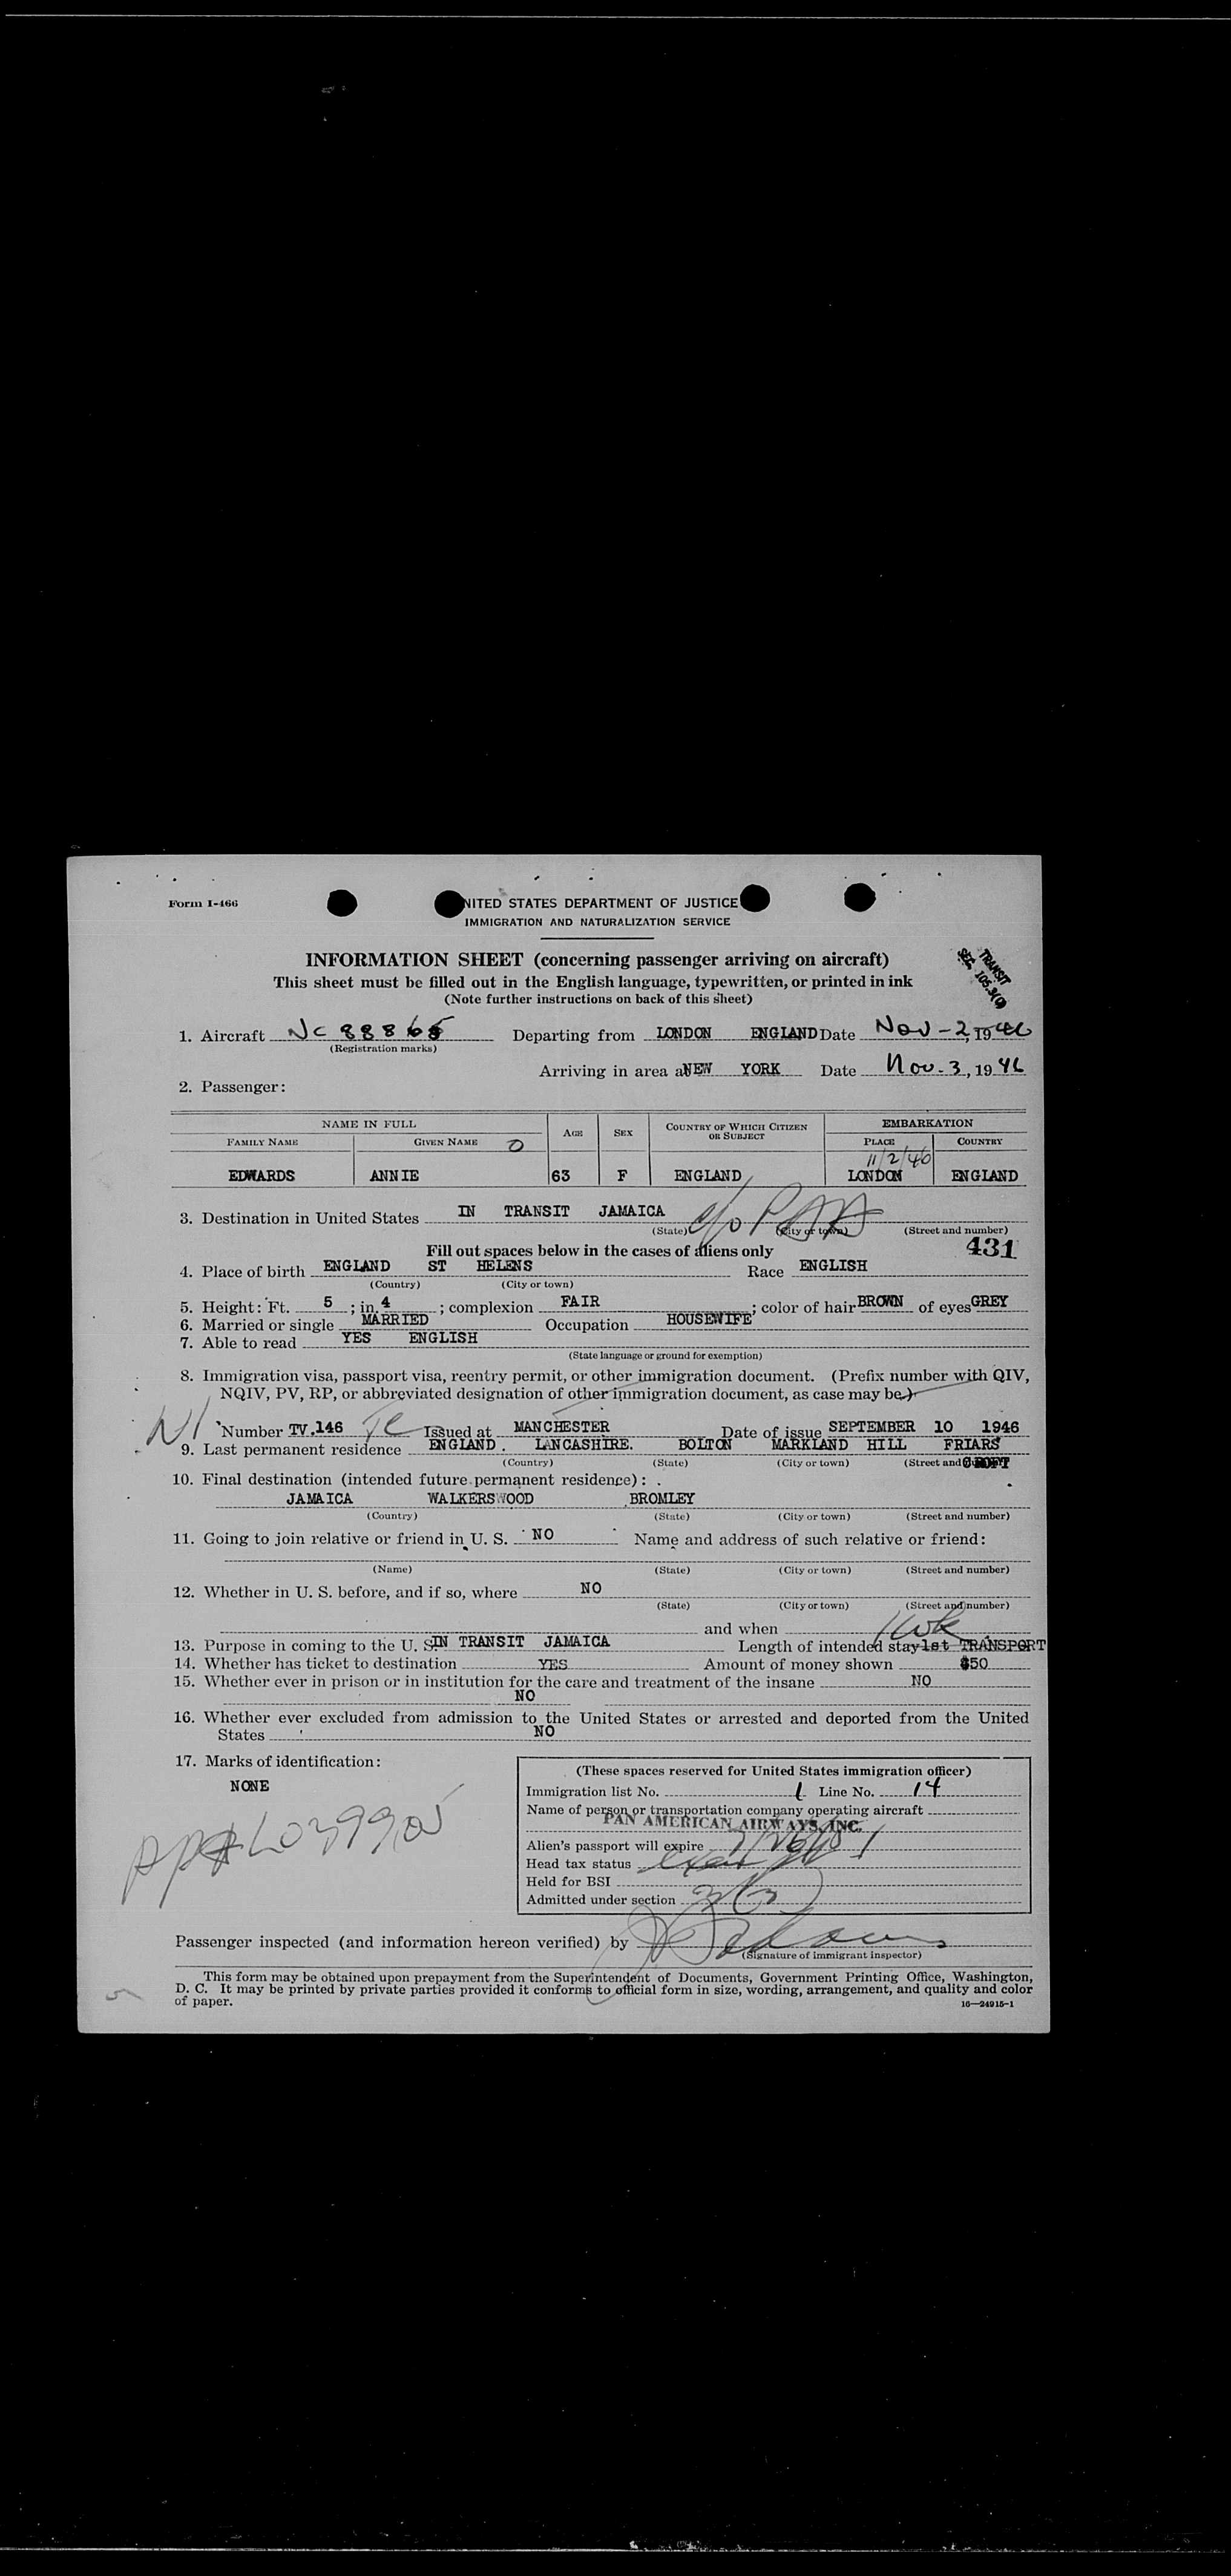 Form I-466
UNITED STATES DEPARTMENT OF JUSTICE
IMMIGRATION AND NATURALIZATION SERVICE
INFORMATION SHEET (concerning passenger arriving on aircraft)
This sheet must be filled out in the English language, typewritten, or printed in ink
(Note further instructions on back of this sheet)
TRANSIT
SEC. 105.3(C)
1. Aircraft NC 88865 Departing from LONDON ENGLAND Date Nov-2, 1946
(Registration marks)
Arriving in area a NEW YORK Date Nov. 3, 1946
2. Passenger:
NAME IN FULL AGE SEX COUNTRY OF WHICH CITIZEN OR SUBJECT EMBARKATION
FAMILY NAME GIVEN NAME PLACE COUNTRY
11/2/46
EDWARDS ANNIE 63 F ENGLAND LONDON ENGLAND
3. Destination in United States IN TRANSIT JAMAICA c/o PAA
(State) (City or town) (Street and number)
Fill out spaces below in the cases of aliens only 431
4. Place of birth ENGLAND ST HELENS Race ENGLISH
(Country) (City or town)
5. Height: Ft. 5 ; in. 4 ; complexion FAIR ; color of hair BROWN of eyes GREY
6. Married or single MARRIED Occupation HOUSEWIFE
7. Able to read YES ENGLISH
(State language or ground for exemption)
8. Immigration visa, passport visa, reentry permit, or other immigration document. (Prefix number with QIV,
NQIV, PV, RP, or abbreviated designation of other immigration document, as case may be.)
Number TV.146 Issued at MANCHESTER Date of issue SEPTEMBER 10 1946
9. Last permanent residence ENGLAND. LANCASHIRE. BOLTON MARKLAND HILL FRIARS
(Country) (State) (City or town) (Street and CROFT
10. Final destination (intended future permanent residence):
JAMAICA WALKERSWOOD BROMLEY
(Country) (State) (City or town) (Street and number)
11. Going to join relative or friend in U. S. NO Name and address of such relative or friend:
(Name) (State) (City or town) (Street and number)
12. Whether in U. S. before, and if so, where NO
(State) (City or town) (Street and number)
and when
1 wk
13. Purpose in coming to the U. S. IN TRANSIT JAMAICA Length of intended stay 1st TRANSPORT
14. Whether has ticket to destination YES Amount of money shown $50
15. Whether ever in prison or in institution for the care and treatment of the insane NO
NO
16. Whether ever excluded from admission to the United States or arrested and deported from the United
States NO
17. Marks of identification:
NONE
(These spaces reserved for United States immigration officer)
Immigration list No. 1 Line No. 14
Name of person or transportation company operating aircraft
PAN AMERICAN AIRWAYS, INC.
Alien's passport will expire
Head tax status
Held for BSI
Admitted under section 3(3)
Passenger inspected (and information hereon verified) by
(Signature of immigrant inspector)
This form may be obtained upon prepayment from the Superintendent of Documents, Government Printing Office, Washington,
D. C. It may be printed by private parties provided it conforms to official form in size, wording, arrangement, and quality and color
of paper. 16—24915-1